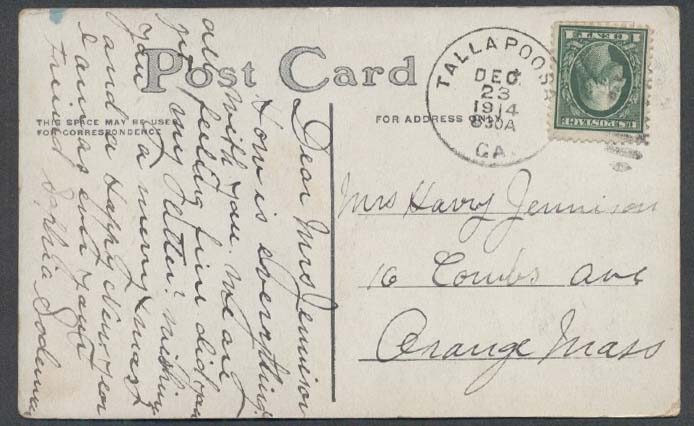 Post Card
THIS SPACE MAY BE USED
FOR CORRESPONDENCE
FOR ADDRESS ONLY
TALLAPOOSA
DEC
23
1914
830A
GA.
U.S. POSTAGE
1 CENT 1
Dear Mrs Jennison
How is everything
with you. We are
all feeling fine did you
get my letter? Wishing
you a merry Xmas
and a Happy New Year
I am as ever your
friend Sophia
Mrs Harry Jennison
16 Combs Ave
Orange Mass